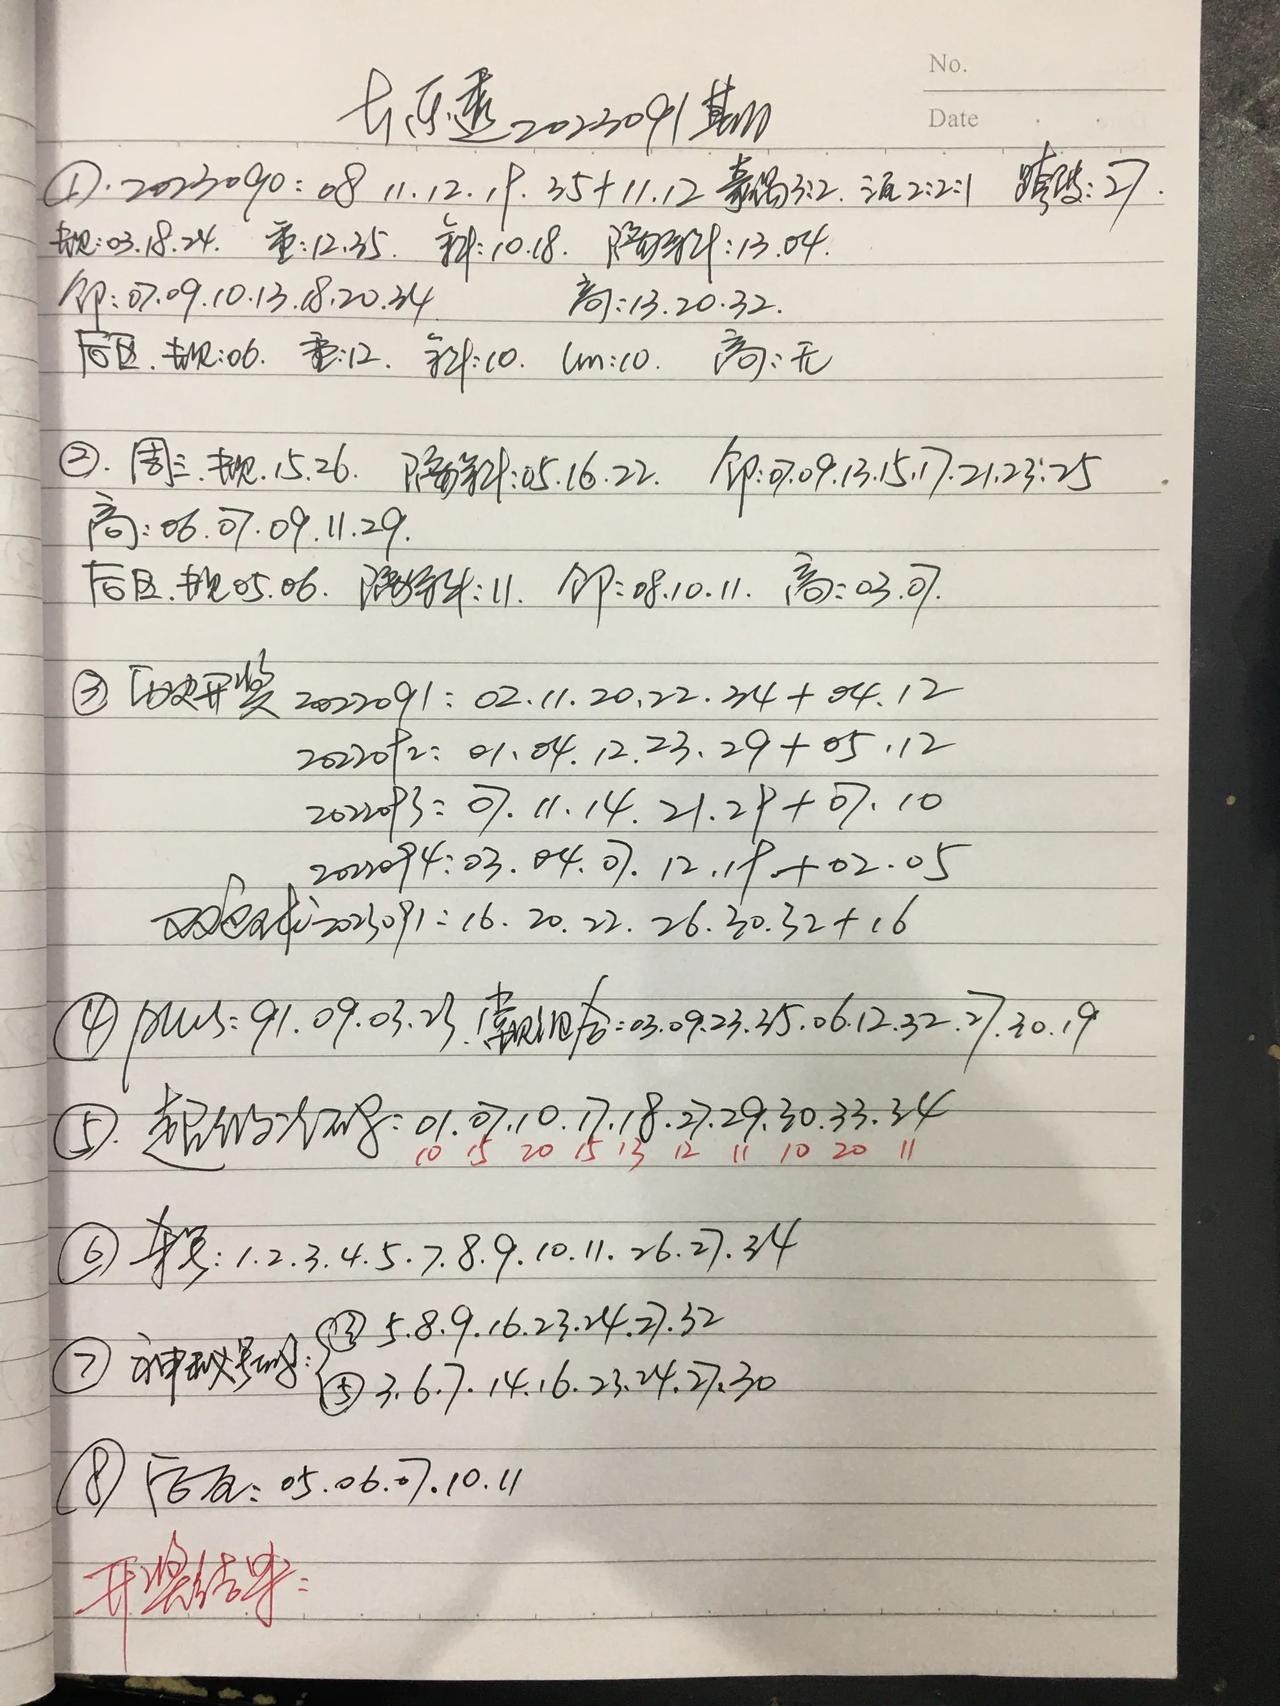 No.
Date
大乐透2023091期
①.2023090:08 11.12.19.35+11.12 奇偶3:2.三区2:2:1 跨度:27.
规:03.18.24. 重:12.35. 斜:10.18. 隔期斜:13.04.
邻:07.09.10.13.18.20.34 高:13.20.32.
后区.规:06. 重:12. 斜:10. Lm:10. 高:无
②.周三.规.15.26. 隔期斜:05.16.22. 邻:07.09.13.15.17.21.23.25
高:06.07.09.11.29.
后区.规05.06. 隔期斜:11. 邻:08.10.11. 高:03.07.
③历史开奖 2022091:02.11.20.22.34+04.12
2022092:01.04.12.23.29+05.12
2022093:07.11.14.21.29+07.10
2022094:03.04.07.12.19.+02.05
双色球2023091:16.20.22.26.30.32+16
④plus:91.09.03.23.常规组合:03.09.23.35.06.12.32.27.30.19
⑤.超给力冷码:01.07.10.17.18.27.29.30.33.34
10 15 20 15 13 12 11 10 20 11
⑥:1.2.3.4.5.7.8.9.10.11.26.27.34
⑦神秘号码:{③5.8.9.16.23.24.27.32
⑤3.6.7.14.16.23.24.27.30
⑧后区:05.06.07.10.11
开奖结果: